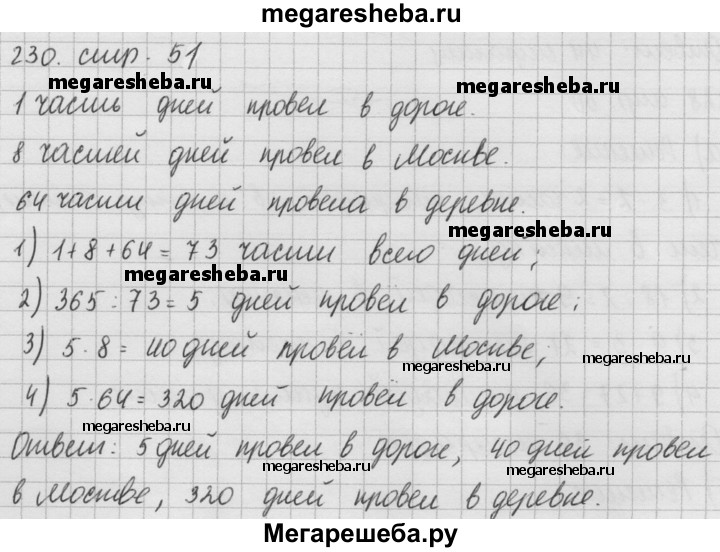 megaresheba.ru
230. стр. 51
megaresheba.ru
megaresheba.ru
1 часть дней провел в дороге.
8 частей дней провел в Москве.
64 части дней провела в деревне.
megaresheba.ru
1) 1+8+64=73 части всего дней;
megaresheba.ru
2) 365:73=5 дней провёл в дороге;
3) 5·8=40 дней провёл в Москве;
megaresheba.ru
megaresheba.ru
4) 5·64=320 дней провёл в дороге.
megaresheba.ru
Ответ: 5 дней провел в дороге, 40 дней провел
megaresheba.ru
megaresheba.ru
в Москве, 320 дней провел в деревне.
Мегарешеба.ру